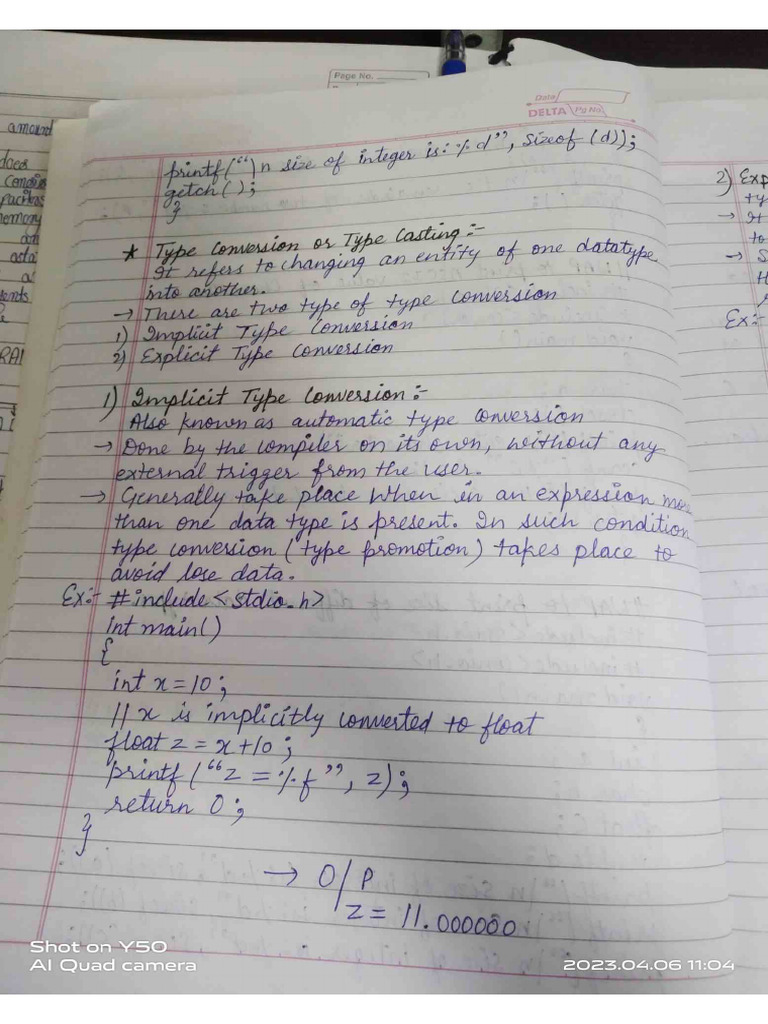 Page No.
Date
DELTA Pg No.
printf("\n size of integer is: %d", sizeof (d));
getch();
}
* Type Conversion or Type Casting :-
It refers to changing an entity of one datatype
into another.
→ There are two type of type conversion
1) Implicit Type Conversion
2) Explicit Type Conversion
1) Implicit Type Conversion :-
Also known as automatic type conversion
→ Done by the compiler on its own, without any
external trigger from the user.
→ Generally take place when in an expression more
than one data type is present. In such condition
type conversion (type promotion) takes place to
avoid lose data.
Ex:- #include <stdio.h>
int main()
{
int x = 10;
// x is implicitly converted to float
float z = x+10;
printf("z = %f", z);
return 0;
}
→ O/P
z = 11.000000
amount
does
memory
2) Exp
ty
→ It
to
→ S
Ex:-
Shot on Y50
AI Quad camera
2023.04.06 11:04